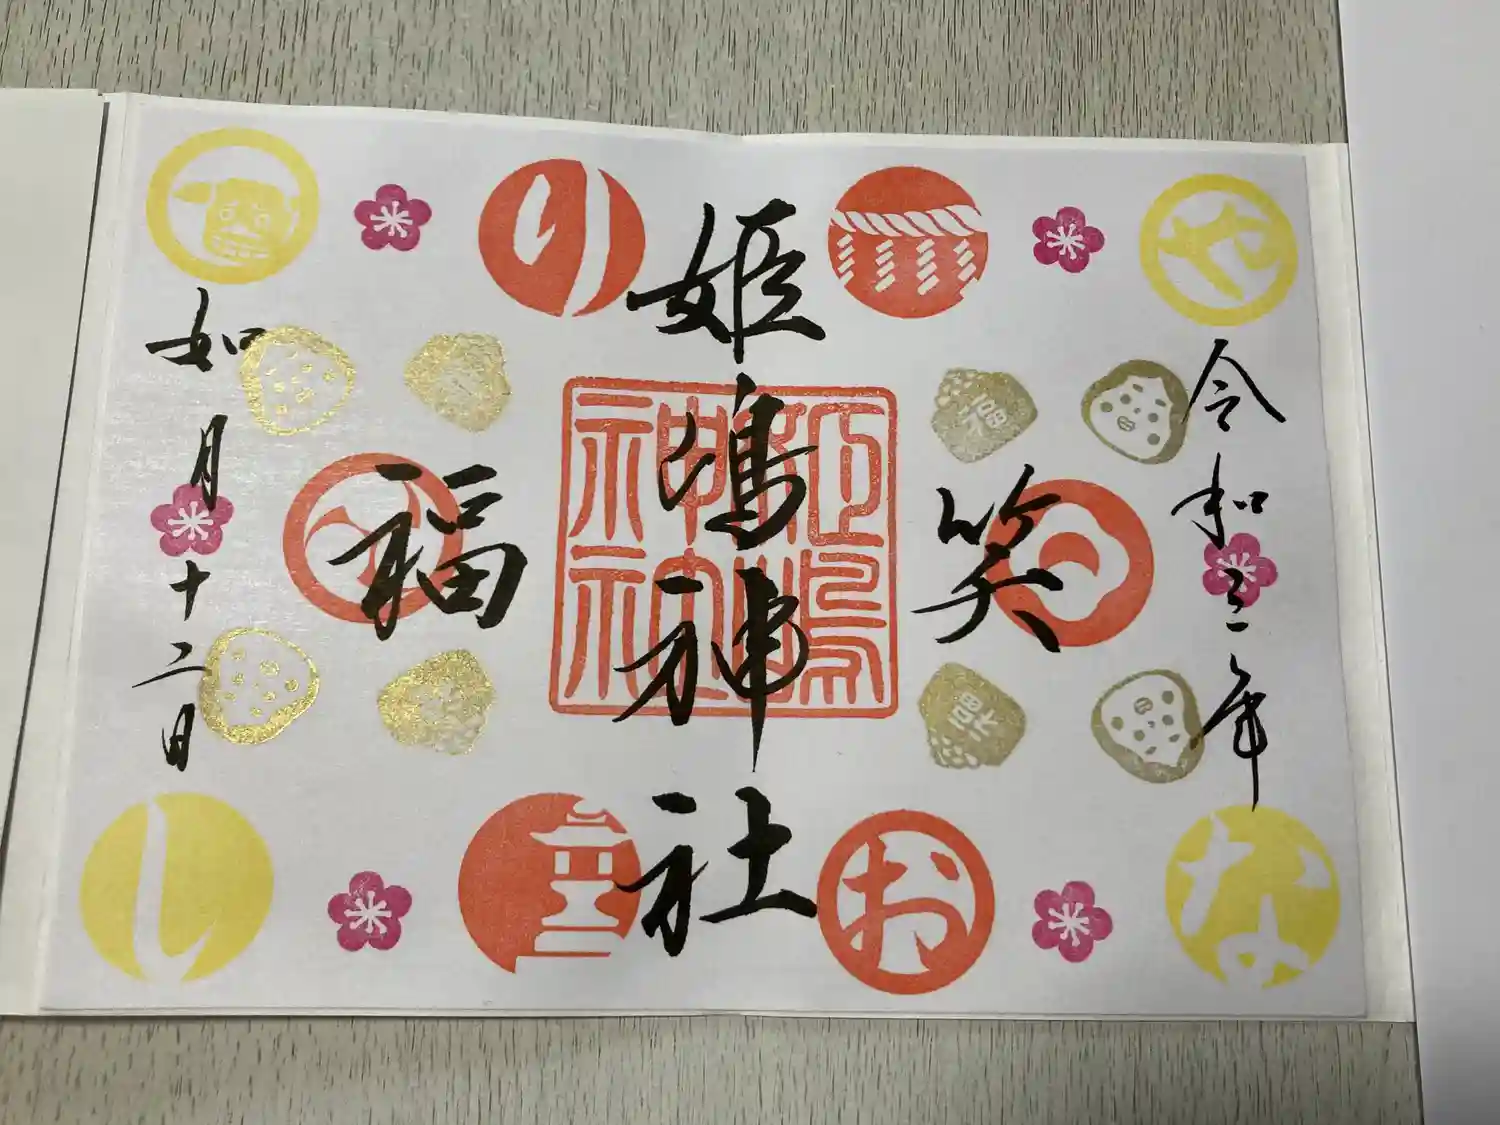 や
り
な
お
し
令和三年
笑
姫嶋神社
福
如月十二日
姫嶋
神社
福
福